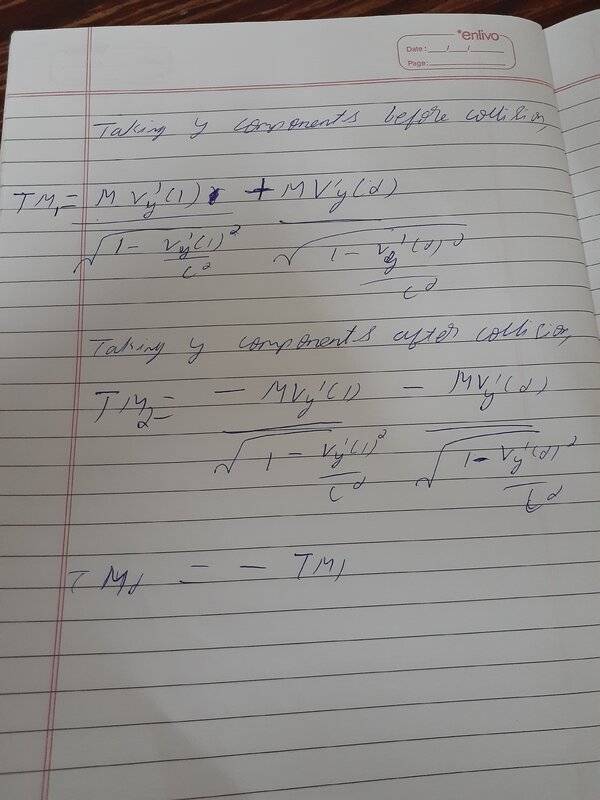 enlivo
Date: __/__/__
Page:
Taking y components before collision,
TM₁ = M Vy'(1) / √(1 - Vy'(1)²/c²) + M V'y(2) / √(1 - Vy'(2)²/c²)
Taking y components after collision,
TM₂ = - MVy'(1) / √(1 - Vy'(1)²/c²) - MVy'(2) / √(1 - Vy'(2)²/c²)
TM₂ = - TM₁